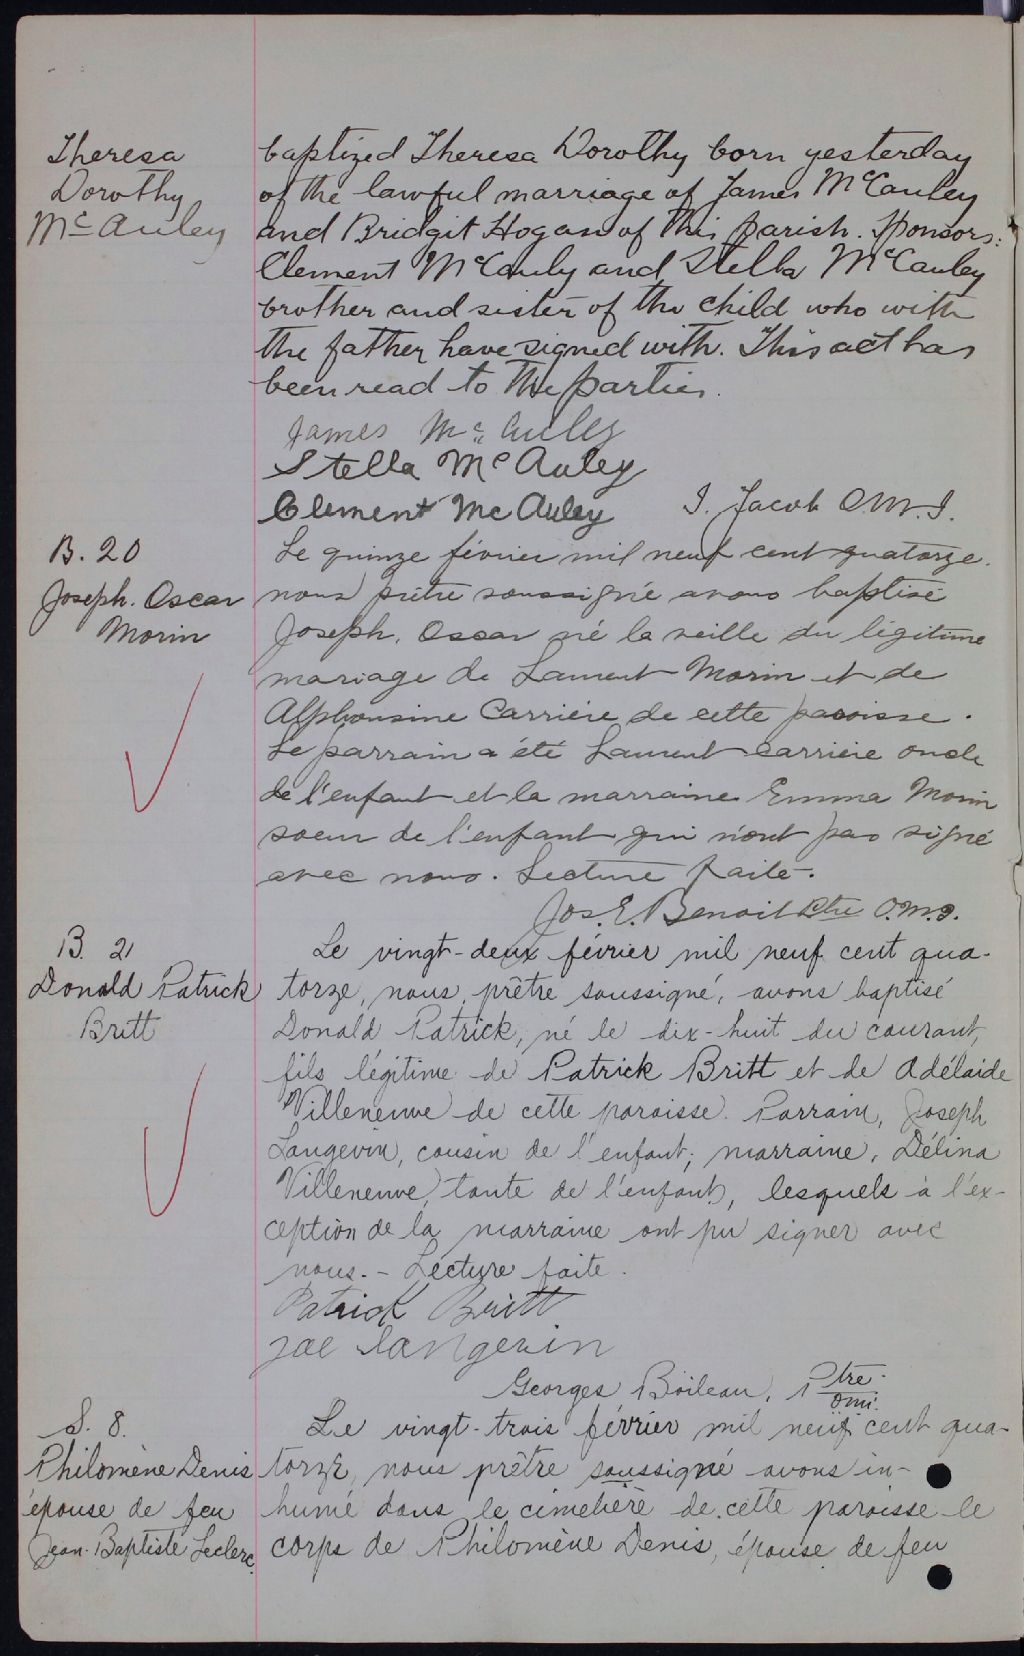 Theresa
Dorothy
McAuley
baptized Theresa Dorothy born yesterday
of the lawful marriage of James McCauley
and Bridgit Hogan of this parish. Sponsors:
Clement McCauly and Stella McCauley
brother and sister of the child who with
the father have signed with. This act has
been read to the parties.
James Mc Auley
Stella Mc Auley
Clement Mc Auley J. Jacob O.M.I.
B. 20
Joseph. Oscar
Morin
Le quinze février mil neuf cent quatorze.
nous prêtre soussigné avons baptisé
Joseph. Oscar né la veille du légitime
mariage de Laurent Morin et de
Alphonsine Carrière de cette paroisse.
Le parrain a été Laurent Carrière oncle
de l'enfant et la marraine Emma Morin
soeur de l'enfant qui n'ont pas signé
avec nous. Lecture faite.
Jos. E. Benoit Ptre O.M.I.
B. 21
Donald Patrick
Britt
Le vingt-deux février mil neuf cent qua-
torze, nous, prêtre soussigné, avons baptisé
Donald Patrick, né le dix-huit du courant,
fils légitime de Patrick Britt et de Adélaide
Villeneuve de cette paroisse. Parrain, Joseph
Langevin, cousin de l'enfant; marraine, Délina
Villeneuve, tante de l'enfant, lesquels à l'ex-
ception de la marraine ont pu signer avec
nous. - Lecture faite.
Patrick Britt
Joe Langevin
Georges Boileau, Ptre.
omi.
S. 8.
Philomène Denis
épouse de feu
Jean-Baptiste Leclerc
Le vingt-trois février mil neuf cent qua-
torze, nous prêtre soussigné avons in-
humé dans le cimetière de cette paroisse le
corps de Philomène Denis, épouse de feu